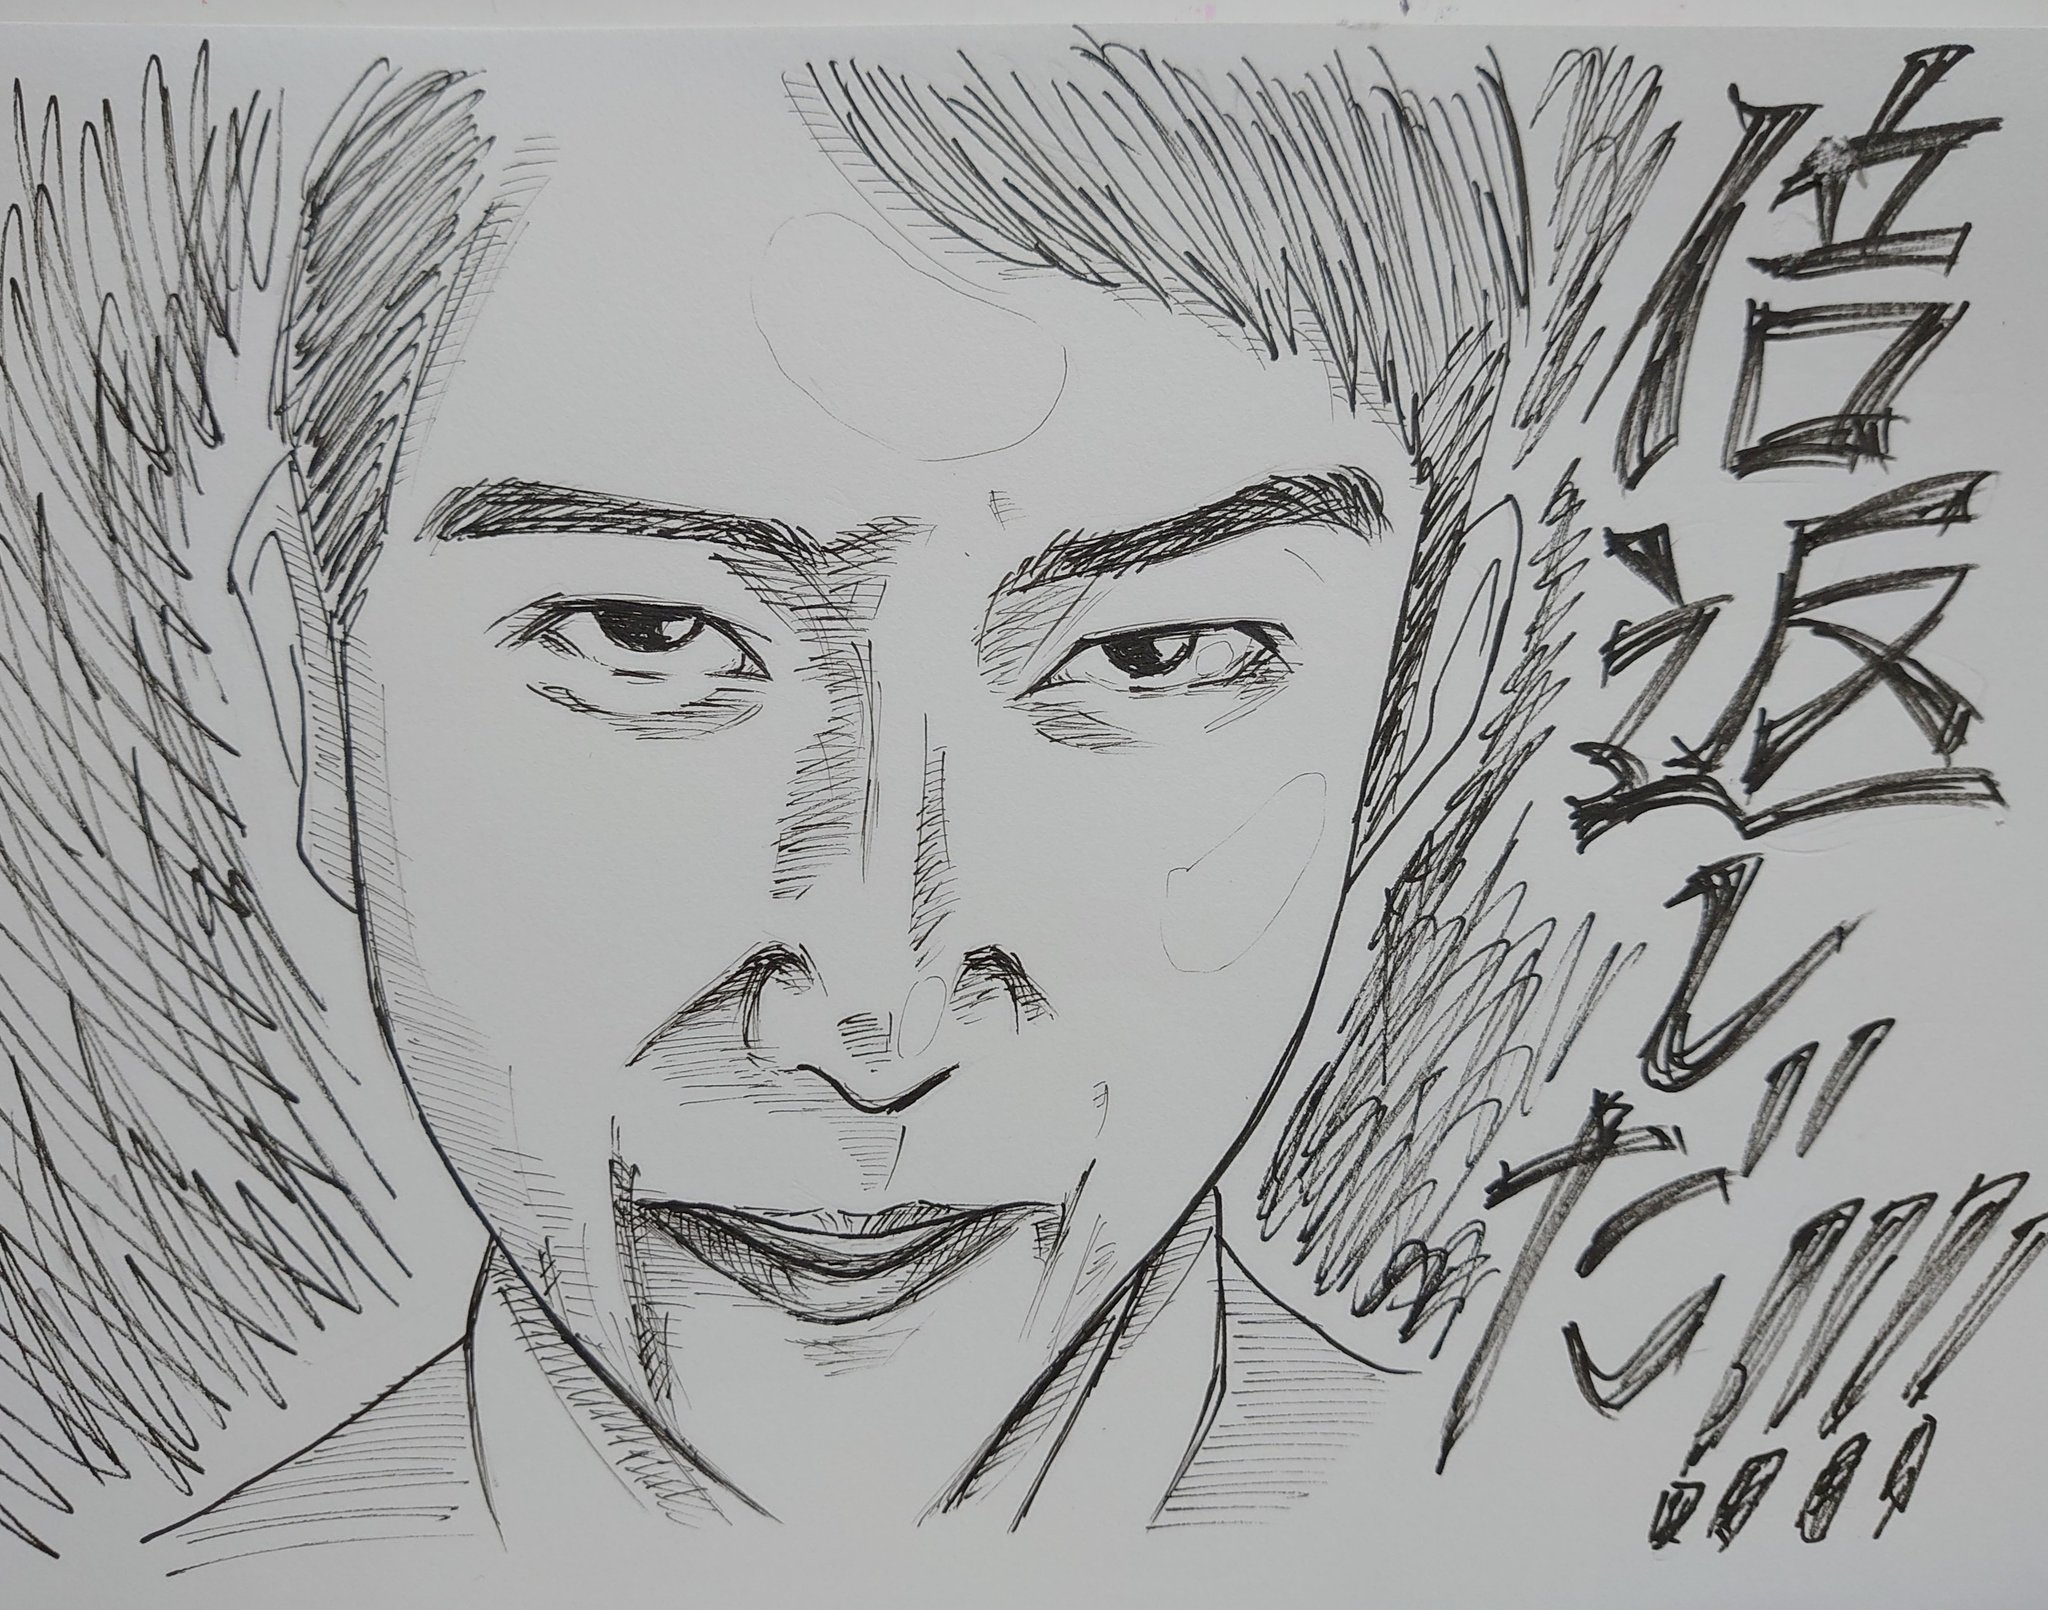 倍返しだ!!!!